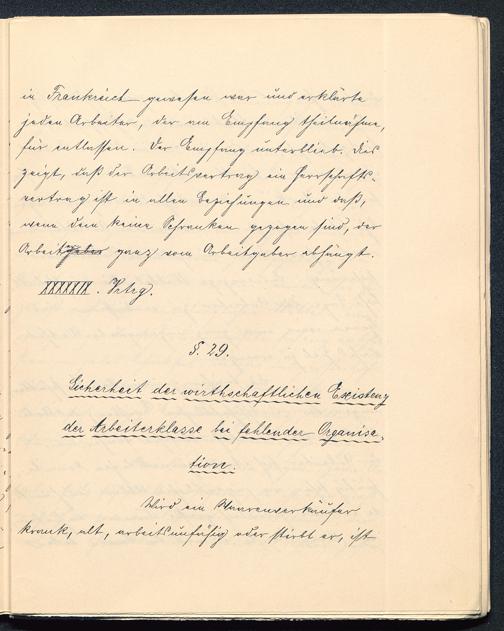 in Frankreich gewesen war und erklärte
jeden Arbeiter, der am Empfang theilnähme,
für entlassen. Der Empfang unterblieb. Dies
zeigt, daß der Arbeitsvertrag ein Herrschafts-
vertrag ist in allen Beziehungen und daß,
wenn dem keine Schranken gezogen sind, der
Arbeitgeber ganz vom Arbeitgeber abhängt.
XXXXXIX. Vrtrg.
§. 29.
Sicherheit der wirthschaftlichen Existenz
der Arbeiterklasse bei fehlender Organisa-
tion.
Wird ein Waarenverkäufer
krank, alt, arbeitsunfähig oder stirbt er, ist